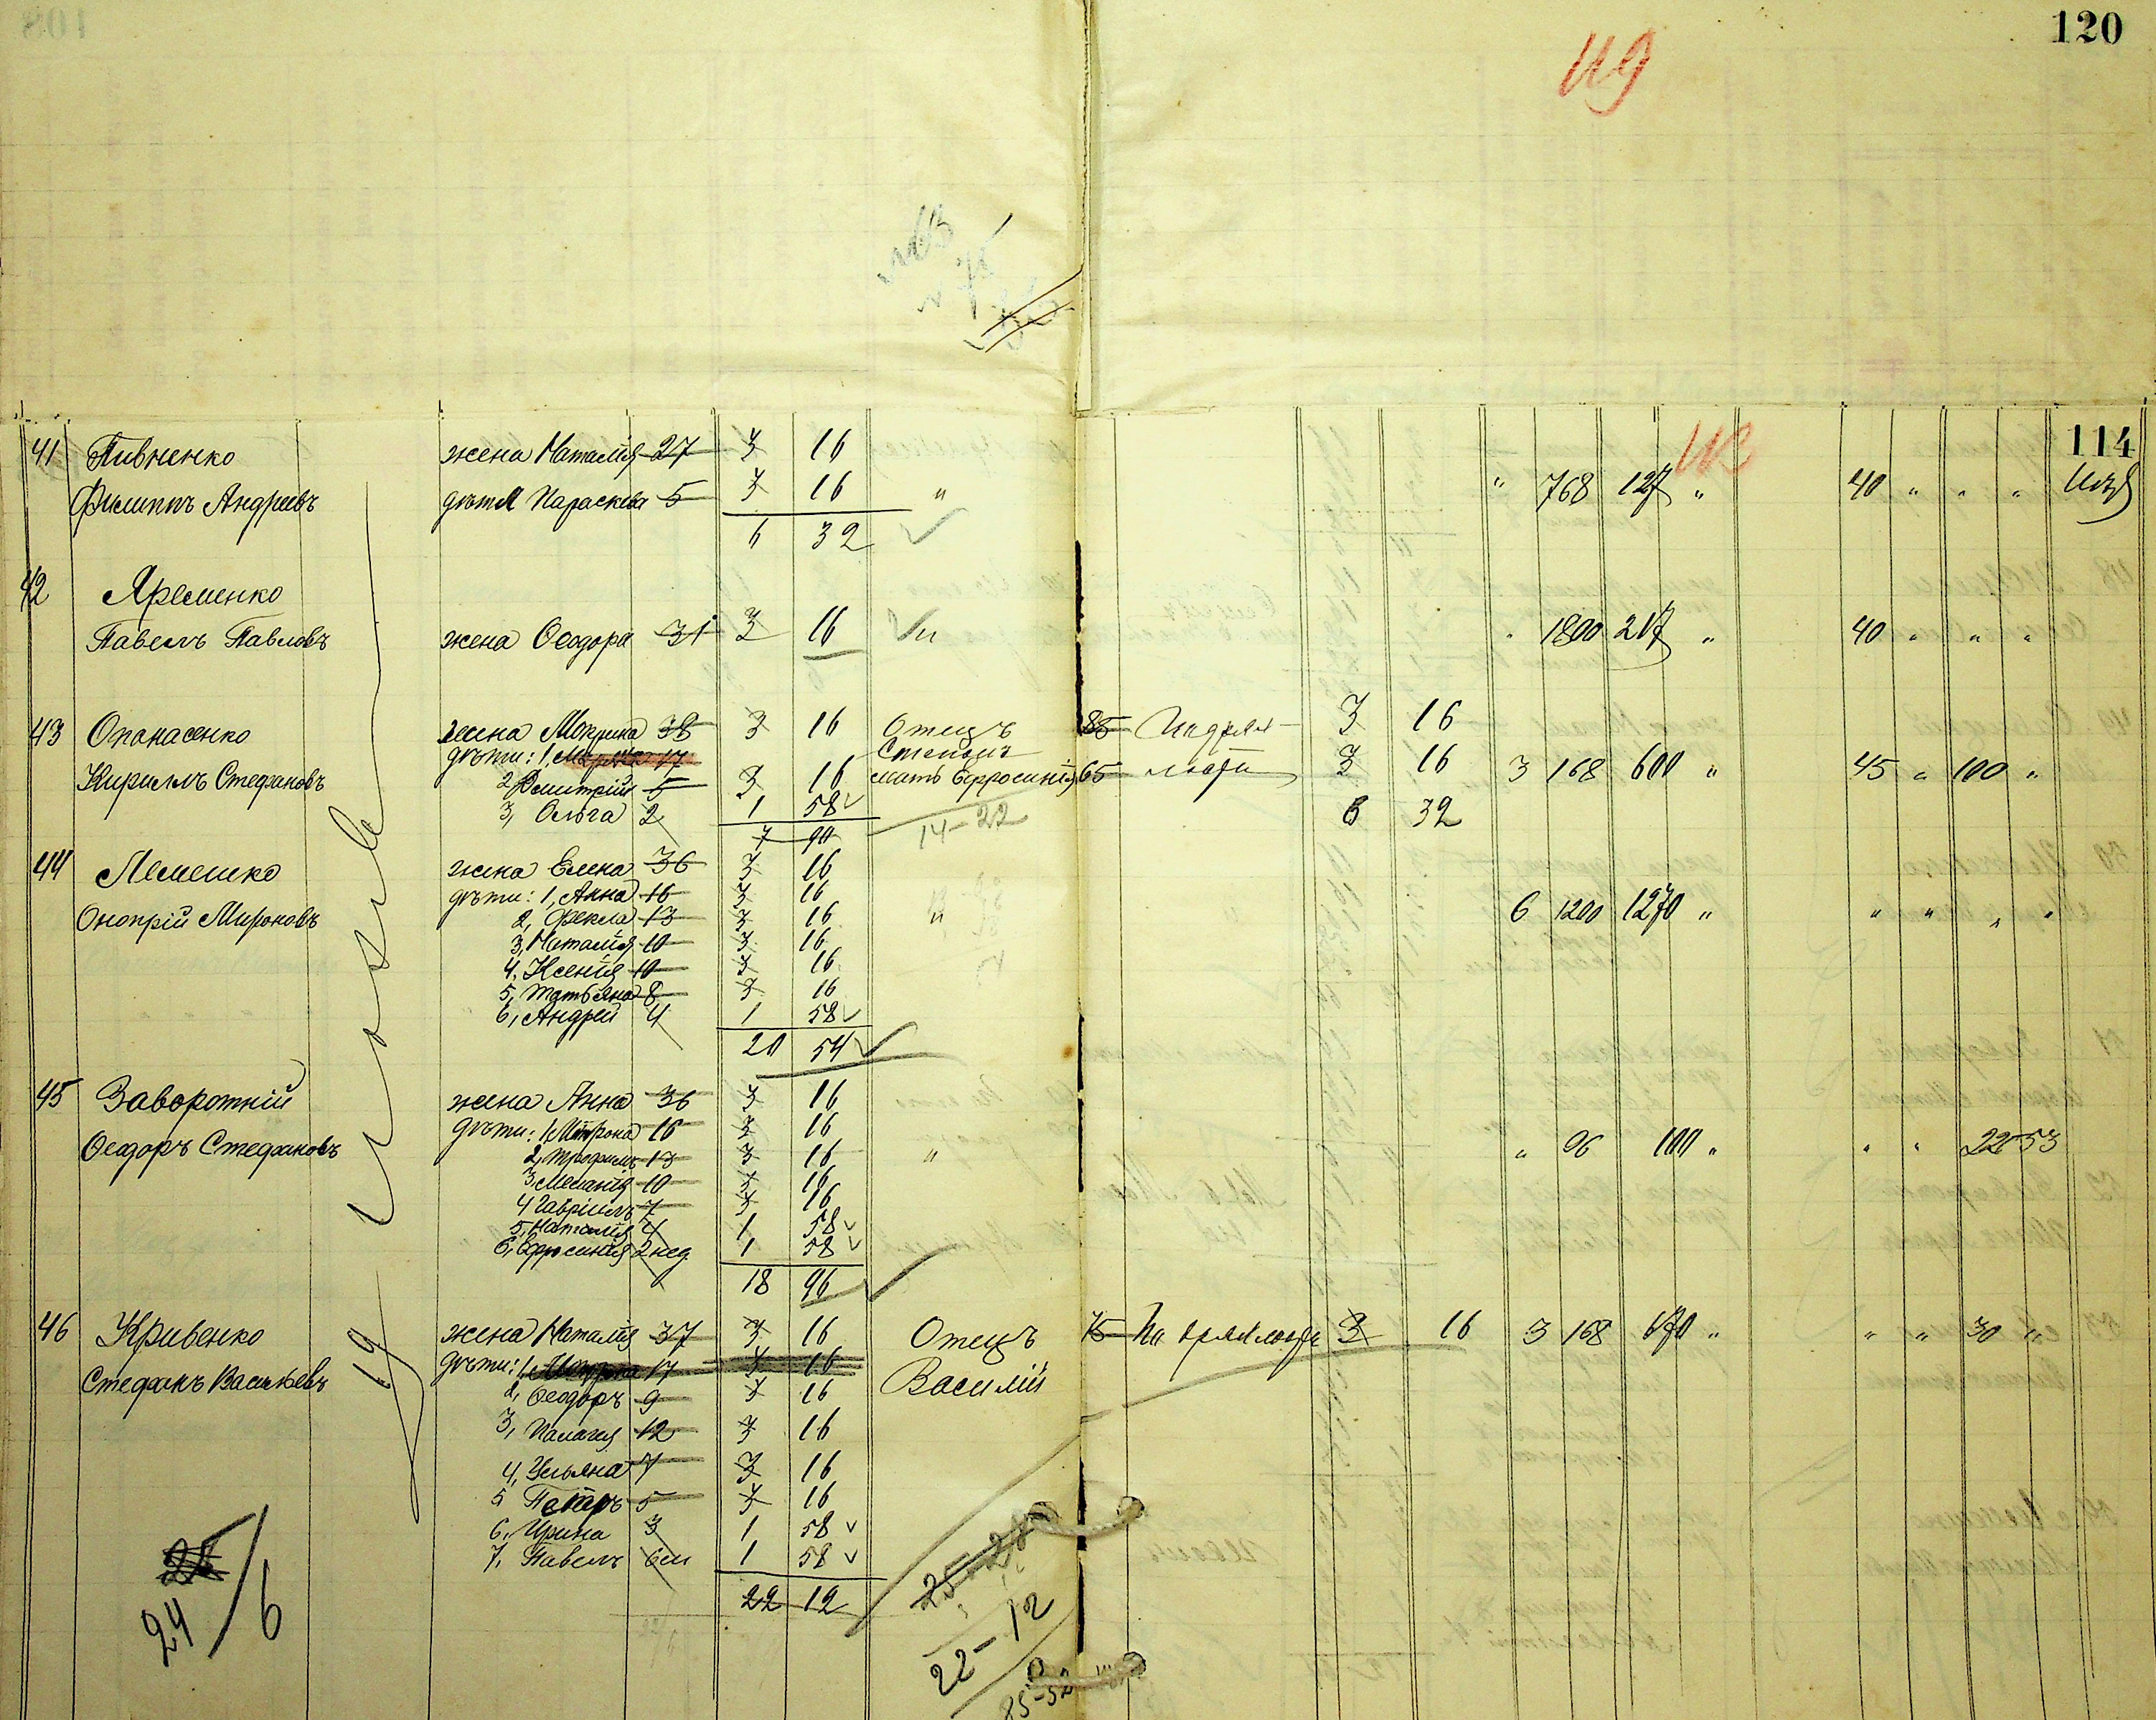 120
119
114
41 Пивненко жена Наталія 27 3 16
Филиппъ Андреевъ дѣти Параскева 5 3 16 " " 768 127 " 40 " " "
6 32
42 Яременко
Павелъ Павловъ жена Ѳеодора 31 3 16 " " 1800 217 " 40 " " "
43 Опанасенко жена Мокрина 38 3 16 Отецъ 85 3 16
дѣти: 1, 17 Степанъ
Кириллъ Стефановъ 2, Димитрій 5 3 16 мать Ефросинія 65 3 16 3 168 600 " 45 " 100 "
3, Ольга 2 1 58 6 32
7 90 14-22
44 Лемешко жена Елена 36 3 16
дѣти: 1, Анна 16 3 16
Онопрій Мироновъ 2, Фекла 13 3 16 " 6 1200 1270 " " " " "
3, Наталія 10 3 16
4, Ксенія 10 3 16
5, Татьяна 8 3 16
6, Андрей 4 1 58
20 54
45 Заворотній жена Анна 36 3 16
дѣти: 1, 16 3 16
Ѳеодоръ Стефановъ 2, Трофимъ 13 3 16 " " 96 100 " " " 22 53
3, Меланія 10 3 16
4 Гавріилъ 7 3 16
5, Наталія 4 1 58
6, Ефросинія 2 нед. 1 58
18 96
46 Кривенко жена Наталія 37 3 16 Отецъ 75 3 16 3 168 670 " " " 30 "
Стефанъ Васильевъ дѣти: 1, 17 3 16 Василій
2, Ѳеодоръ 9 3 16
3, Палагея 12 3 16
4, Ульяна 7 3 16
5 Петръ 5 3 16
6, Ирина 3 1 58
7, Павелъ 6 м 1 58
22 12
25-28
22-12
24/6